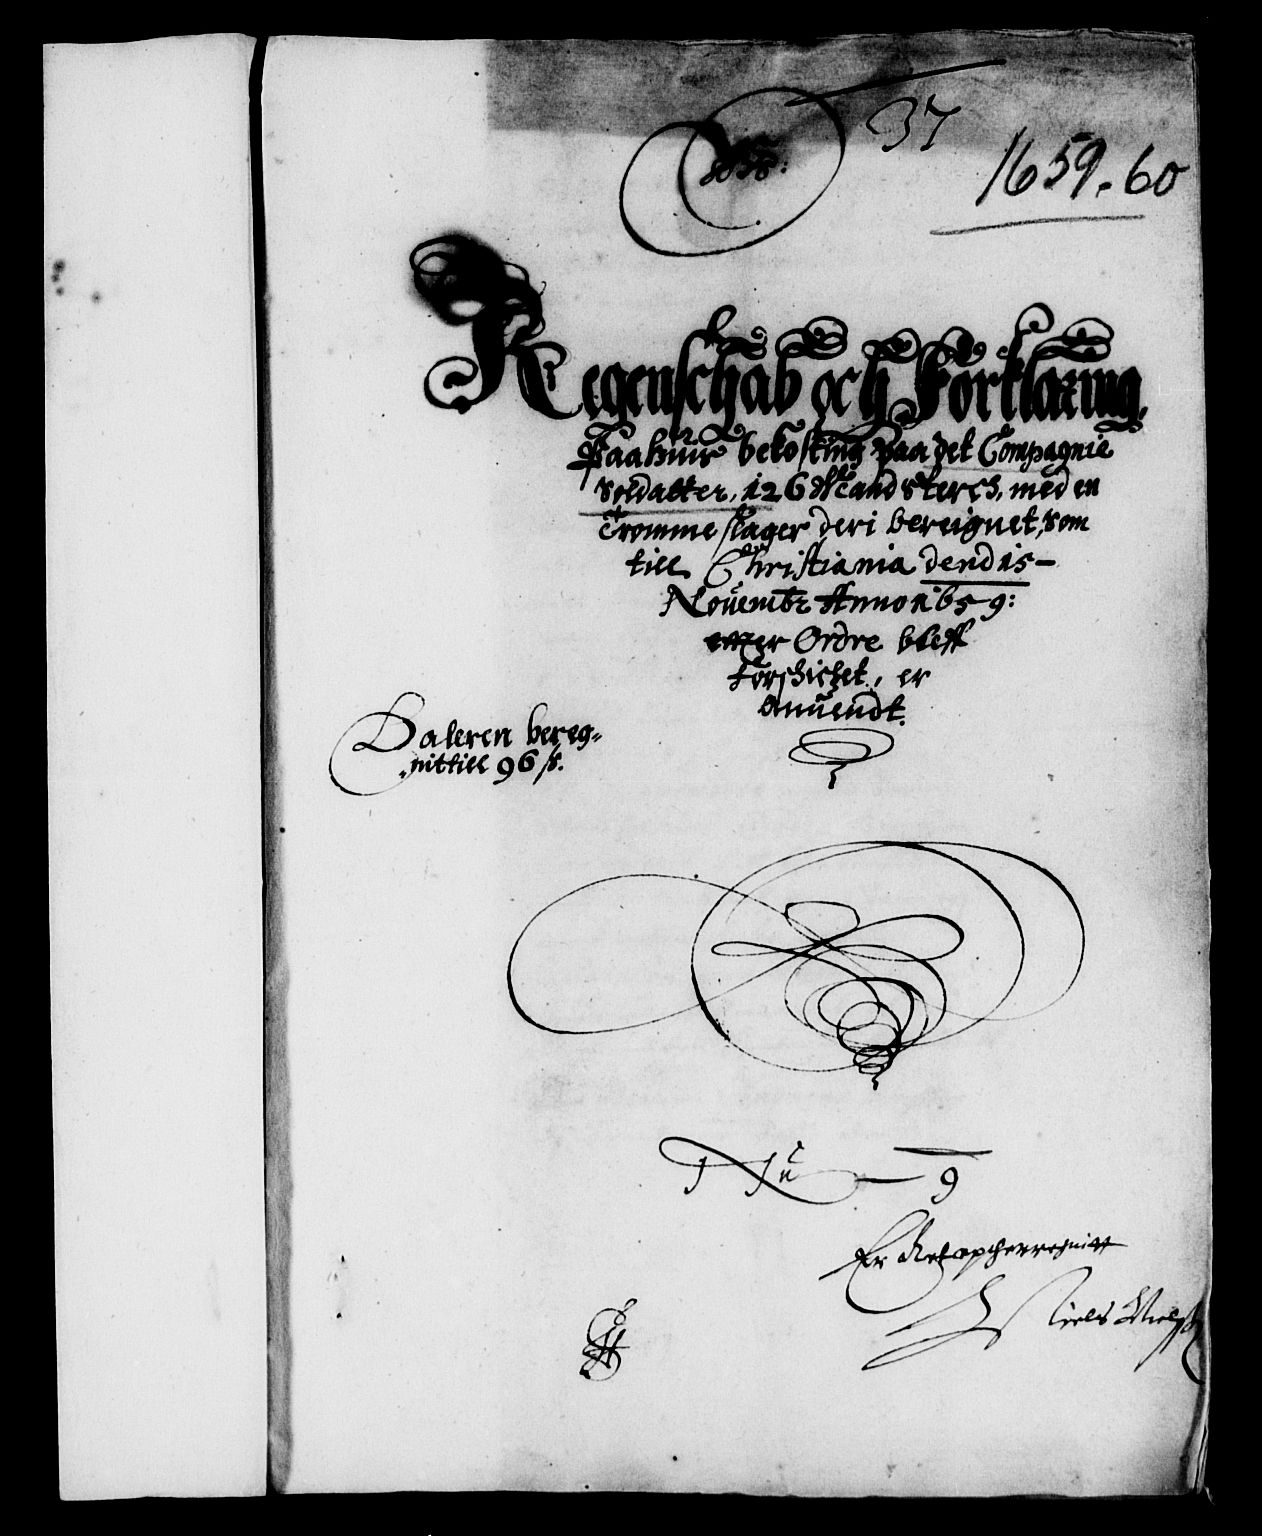 37
1659.60
Regenschab och Forklaring,
Paa huis bekosting paa det Compagnie
Soldatter, 126 Mand sterch, med en
Trommeslager deri bereignet, som
till Christiania dend 15
Nouembr Anno 1659:
effter Ordre bleff
forschichet, er
Anuendt.
Daleren bereg-
nit till 96 ß.
9
Niels